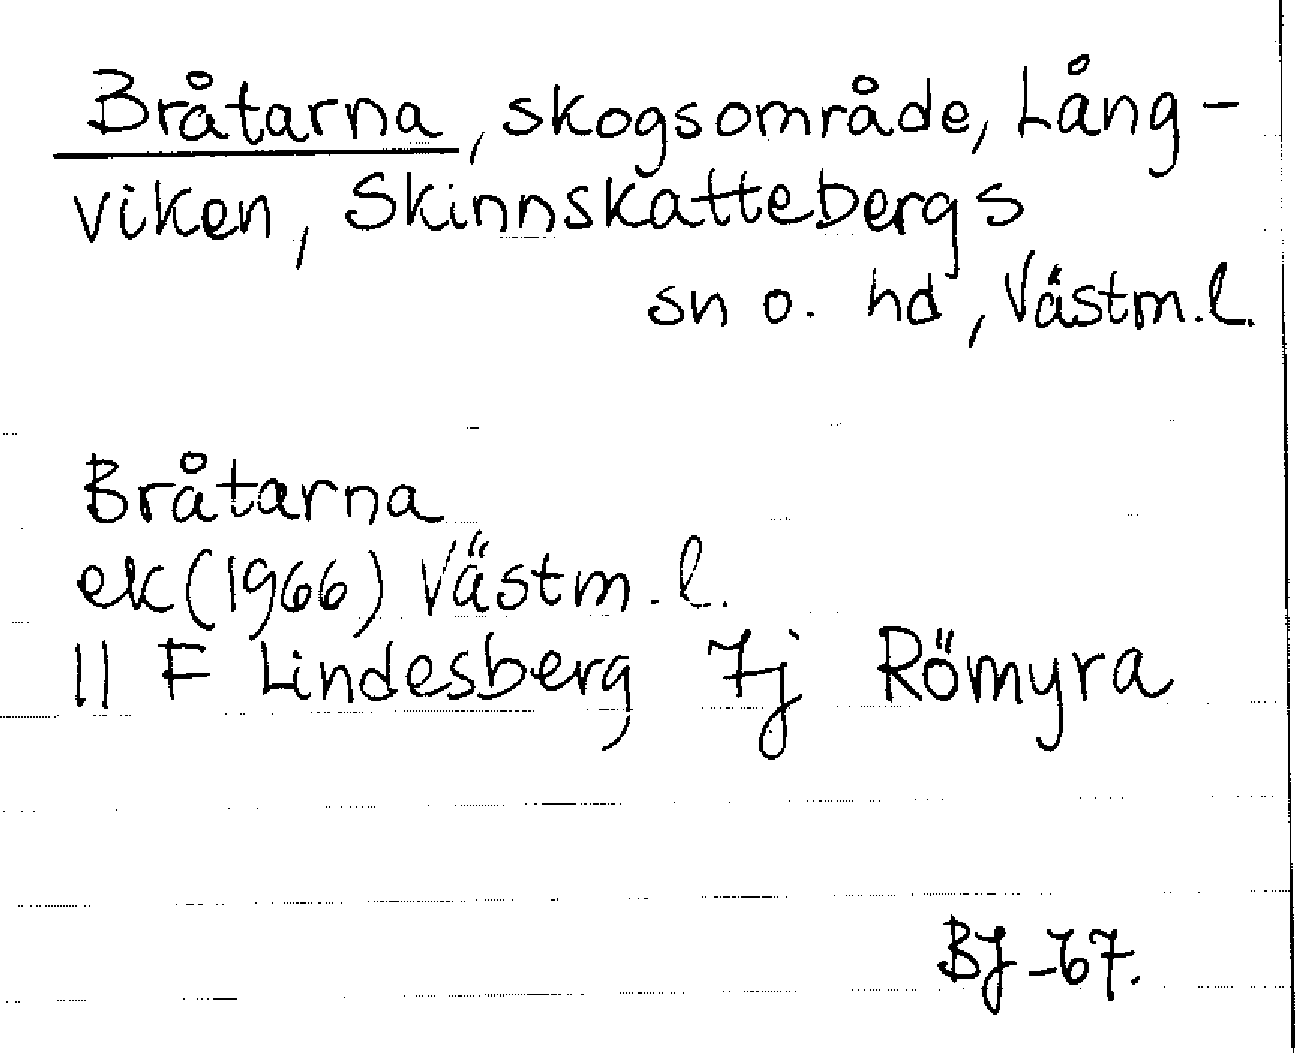 Bråtarna, skogsområde, Lång-
viken, Skinnskattebergs
sn o. hd, Västm.l.
Bråtarna
ek(1966) Västm.l.
11 F Lindesberg 7j Römyra
BJ -67.